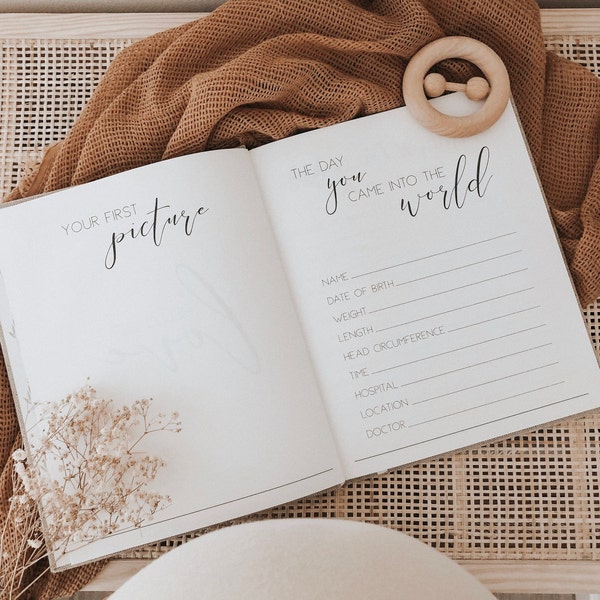 YOUR FIRST
picture
THE DAY
you CAME INTO THE
world
NAME
DATE OF BIRTH
WEIGHT
LENGTH
HEAD CIRCUMFERENCE
TIME
HOSPITAL
LOCATION
DOCTOR